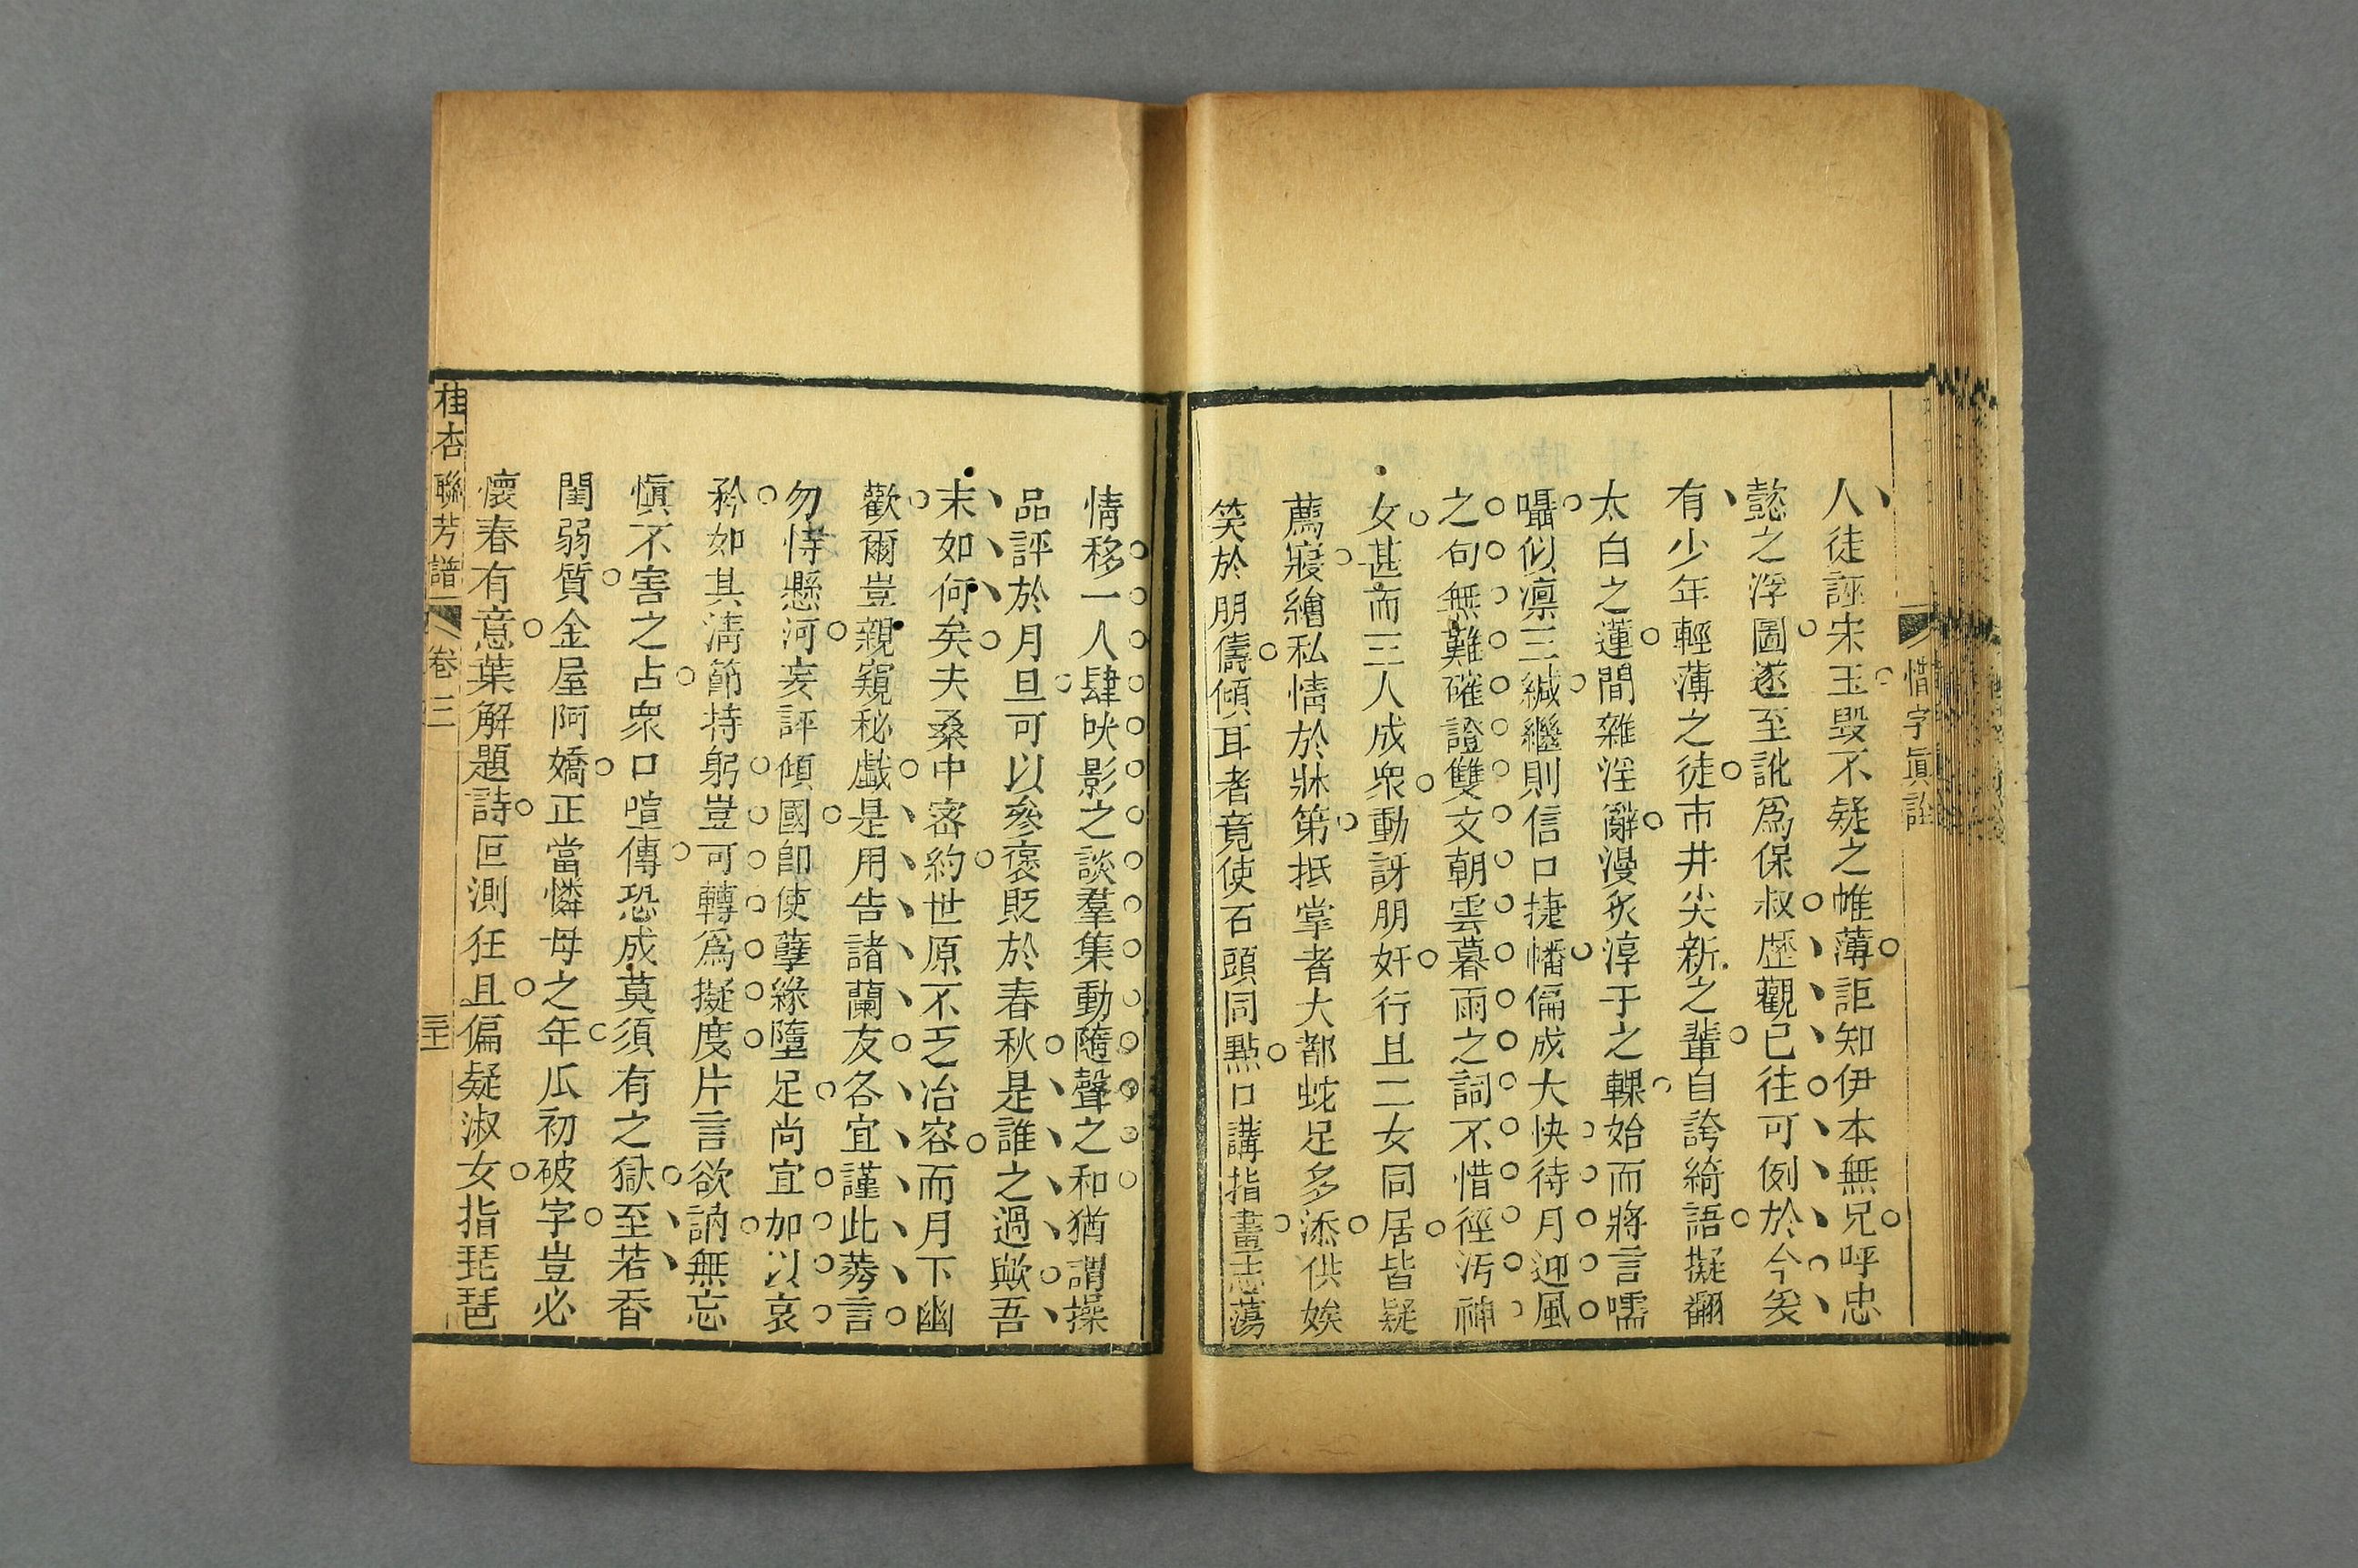 惜字眞詮
人徒誣宋玉毀不疑之帷薄詎知伊本無兄呼忠
懿之浮圖遂至訛爲保叔歷觀已往可例於今矣
有少年輕薄之徒市井尖新之輩自誇綺語擬翻
太白之蓮間雜淫辭漫炙淳于之輠始而將言嚅
囁似凛三緘繼則信口捷幡偏成大快待月迎風
之句無難確證雙文朝雲暮雨之詞不惜徑汚神
女甚而三人成衆動訝朋奸行且二女同居皆疑
薦寢繪私情於牀第抵掌者大都蛇足多添供娭
笑於朋儔傾耳者竟使石頭同點口講指畫志蕩
情移一人肆吠影之談羣集動隨聲之和猶謂操
品評於月旦可以參褒貶於春秋是誰之過歟吾
末如何矣夫桑中密約世原不乏冶容而月下幽
歡爾豈親窺秘戲是用告諸蘭友各宜謹此蒭言
勿恃懸河妄評傾國卽使孽緣墮足尚宜加以哀
矜如其淸節持躬豈可轉爲擬度片言欲訥無忘
愼不害之占衆口喧傳恐成莫須有之獄至若香
閨弱質金屋阿嬌正當憐母之年瓜初破字豈必
懷春有意葉解題詩叵測狂且偏疑淑女指琵琶
桂杏聯芳譜 卷三 三十